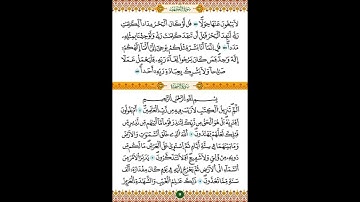 لَا يَبْغُونَ عَنْهَا حِوَلًا ۝ قُل لَّوْ كَانَ الْبَحْرُ مِدَادًا لِّكَلِمَٰتِ
رَبِّي لَنَفِدَ الْبَحْرُ قَبْلَ أَن تَنفَدَ كَلِمَٰتُ رَبِّي وَلَوْ جِئْنَا بِمِثْلِهِ
مَدَدًا ۝ قُلْ إِنَّمَا أَنَا۠ بَشَرٌ مِّثْلُكُمْ يُوحَىٰ إِلَيَّ أَنَّمَا إِلَٰهُكُمْ
إِلَٰهٌ وَٰحِدٌ فَمَن كَانَ يَرْجُوا لِقَاءَ رَبِّهِ فَلْيَعْمَلْ عَمَلًا
صَٰلِحًا وَلَا يُشْرِكْ بِعِبَادَةِ رَبِّهِ أَحَدًا ۝
بِسْمِ اللَّهِ الرَّحْمَٰنِ الرَّحِيمِ
الٓمٓ ۝ تَنزِيلُ الْكِتَٰبِ لَا رَيْبَ فِيهِ مِن رَّبِّ الْعَٰلَمِينَ ۝ أَمْ يَقُولُونَ
افْتَرَىٰهُ بَلْ هُوَ الْحَقُّ مِن رَّبِّكَ لِتُنذِرَ قَوْمًا مَّا أَتَىٰهُم مِّن نَّذِيرٍ مِّن
قَبْلِكَ لَعَلَّهُمْ يَهْتَدُونَ ۝ اللَّهُ الَّذِي خَلَقَ السَّمَٰوَٰتِ وَالْأَرْضَ
وَمَا بَيْنَهُمَا فِي سِتَّةِ أَيَّامٍ ثُمَّ اسْتَوَىٰ عَلَى الْعَرْشِ مَا لَكُم مِّن
دُونِهِ مِن وَلِيٍّ وَلَا شَفِيعٍ أَفَلَا تَتَذَكَّرُونَ ۝ يُدَبِّرُ الْأَمْرَ مِنَ
السَّمَاءِ إِلَى الْأَرْضِ ثُمَّ يَعْرُجُ إِلَيْهِ فِي يَوْمٍ كَانَ مِقْدَارُهُ أَلْفَ
سَنَةٍ مِّمَّا تَعُدُّونَ ۝ ذَٰلِكَ عَٰلِمُ الْغَيْبِ وَالشَّهَٰدَةِ الْعَزِيزُ